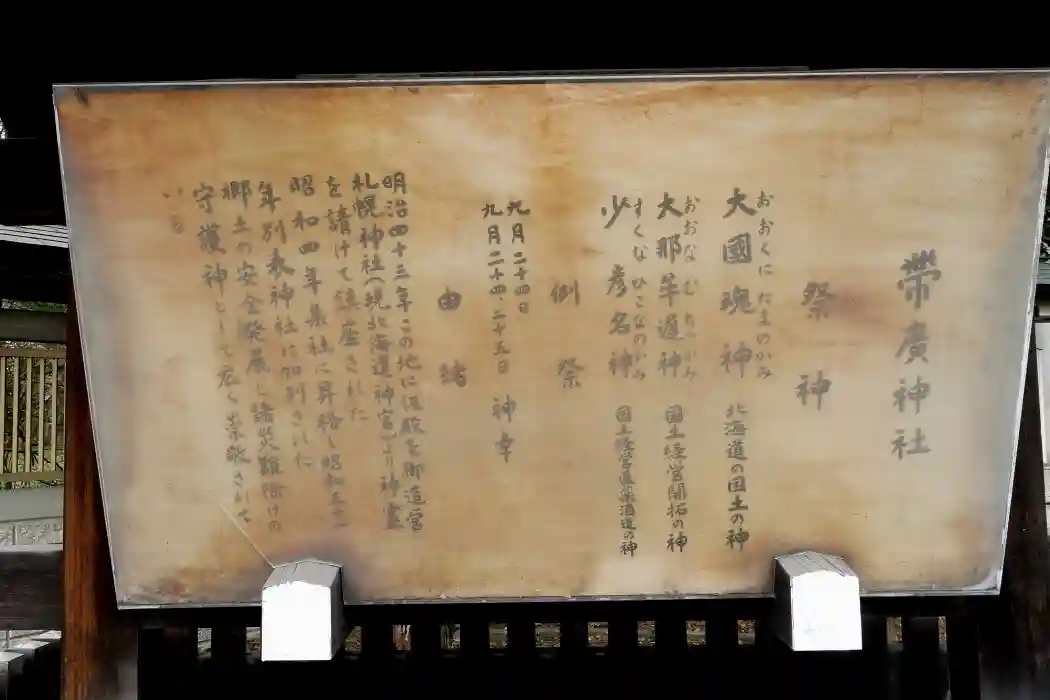 帶廣神社
祭神
おおくにたまのかみ
大國魂神 北海道の国土の神
おおなむちのかみ
大那牟遅神 国土経営開拓の神
すくなひこなのかみ
少彦名神 国土経営医薬酒造の神
例祭
九月二十四日
九月二十四、二十五日 神幸
由緒
明治四十三年この地に仮殿を御造営
札幌神社(現北海道神宮)より神霊
を請けて鎮座された
昭和四年県社に昇格し昭和五十
年別表神社に加列された
郷土の安全発展と諸災難除けの
守護神として広く崇敬されて
いる